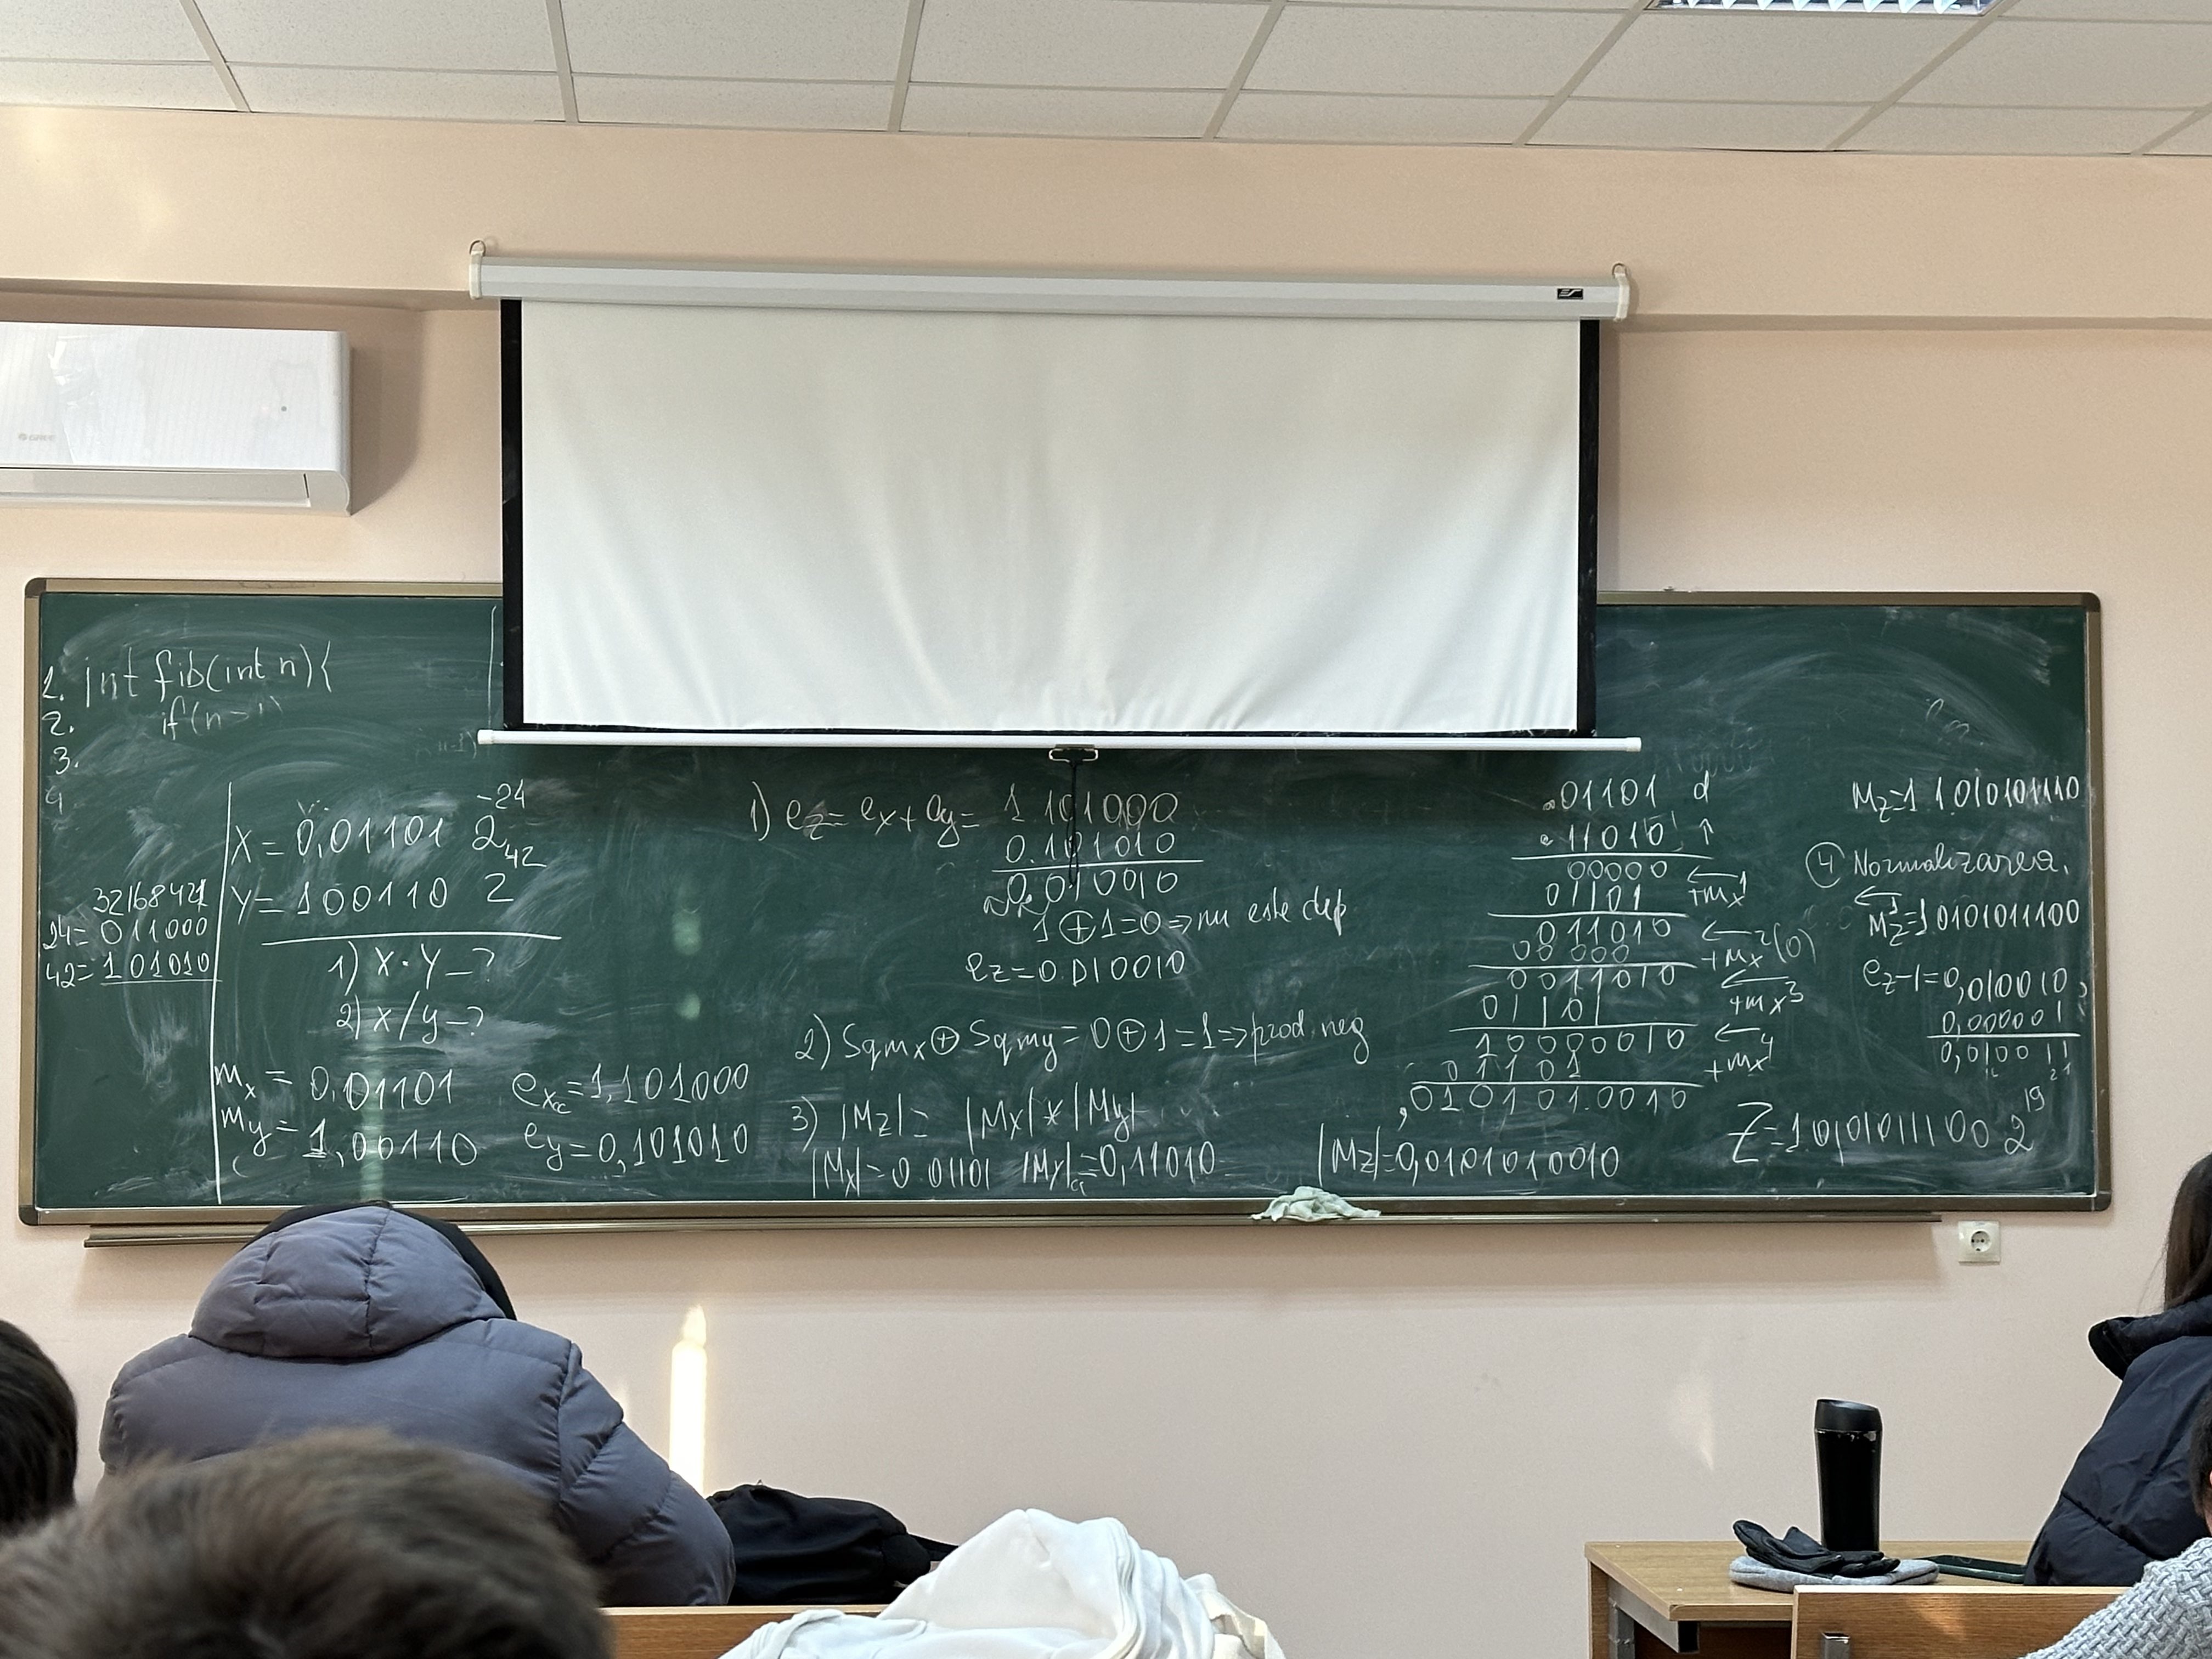 1. int fib(int n){
2. if(n>1)
3.
4.
X = 0,01101 2^-24
Y = 100110 2^42
1) X·Y–?
2) X/y–?
32168421
24= 011000
42= 101010
mx = 0,01101
my = 1,00110
exc=1,101000
ey=0,101010
1) ez= ex+ey= 1.101000
0.101010
0.010010
1⊕1=0⇒nu este dep
ez=0.010010
2) Sqmx⊕Sqmy=0⊕1=1⇒prod.neg
3) |Mz|= |Mx|*|My|
|Mx|=0.01101 |My|=0,11010
01101 d
11010 ↑
00000 ←
01101 +mx1
011010 ←
00000 +mx2(0)
0011010 ←
01101 +mx3
10000010 ←
01101 +mx4
,0101010010
|Mz|=0,0101010010
Mz=1 1.010101110
④ Normalizarea.
Mz=1 0101011100
ez-1=0,010010,
0,000001
0,010011
Z=1.0101011100 2^19